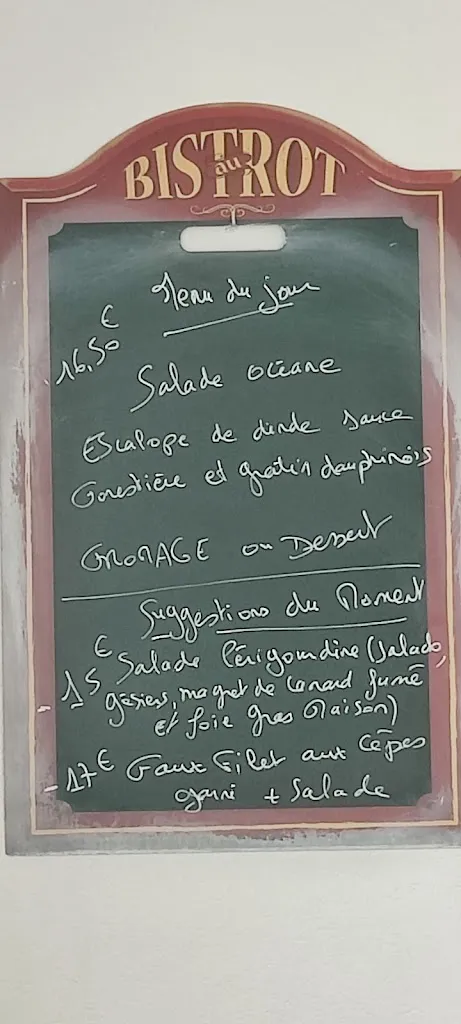 BISTROT
au
Menu du jour
16,50 €
Salade océane
Escalope de dinde sauce
Forestière et gratin dauphinois
FROMAGE ou Dessert
Suggestions du Moment
- 15 € Salade Périgourdine (Salade,
gésiers, magret de Canard fumé
et foie gras Maison)
- 17 € Faux Filet aux Cèpes
garni + Salade